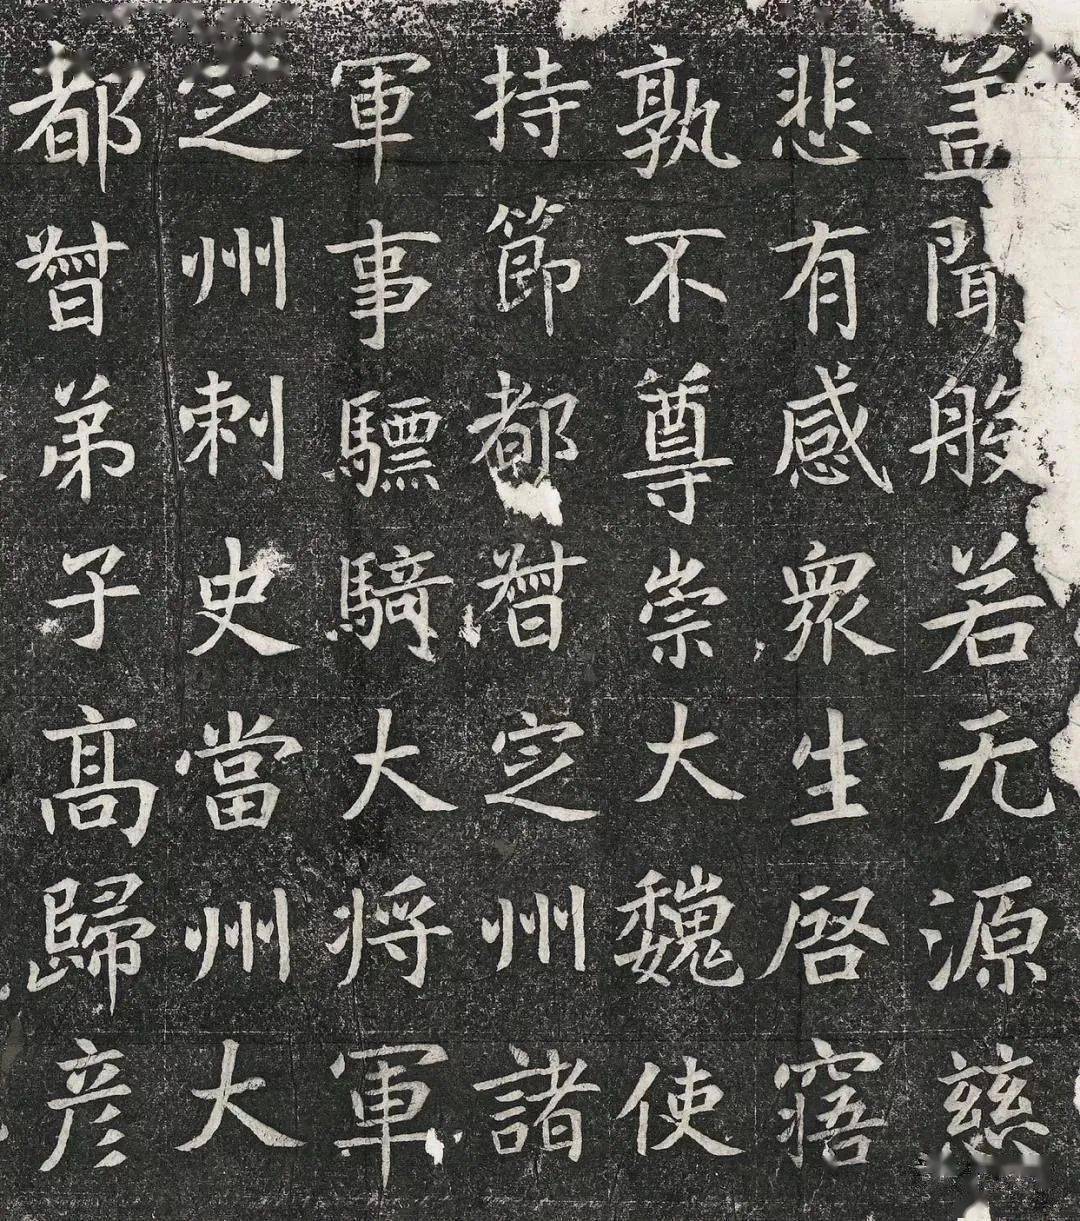 盖聞般若无源慈
悲有感衆生启寤
孰不尊崇大魏使
持節都督定州諸
軍事驃騎大将軍
定州刺史當州大
都督弟子髙歸彦